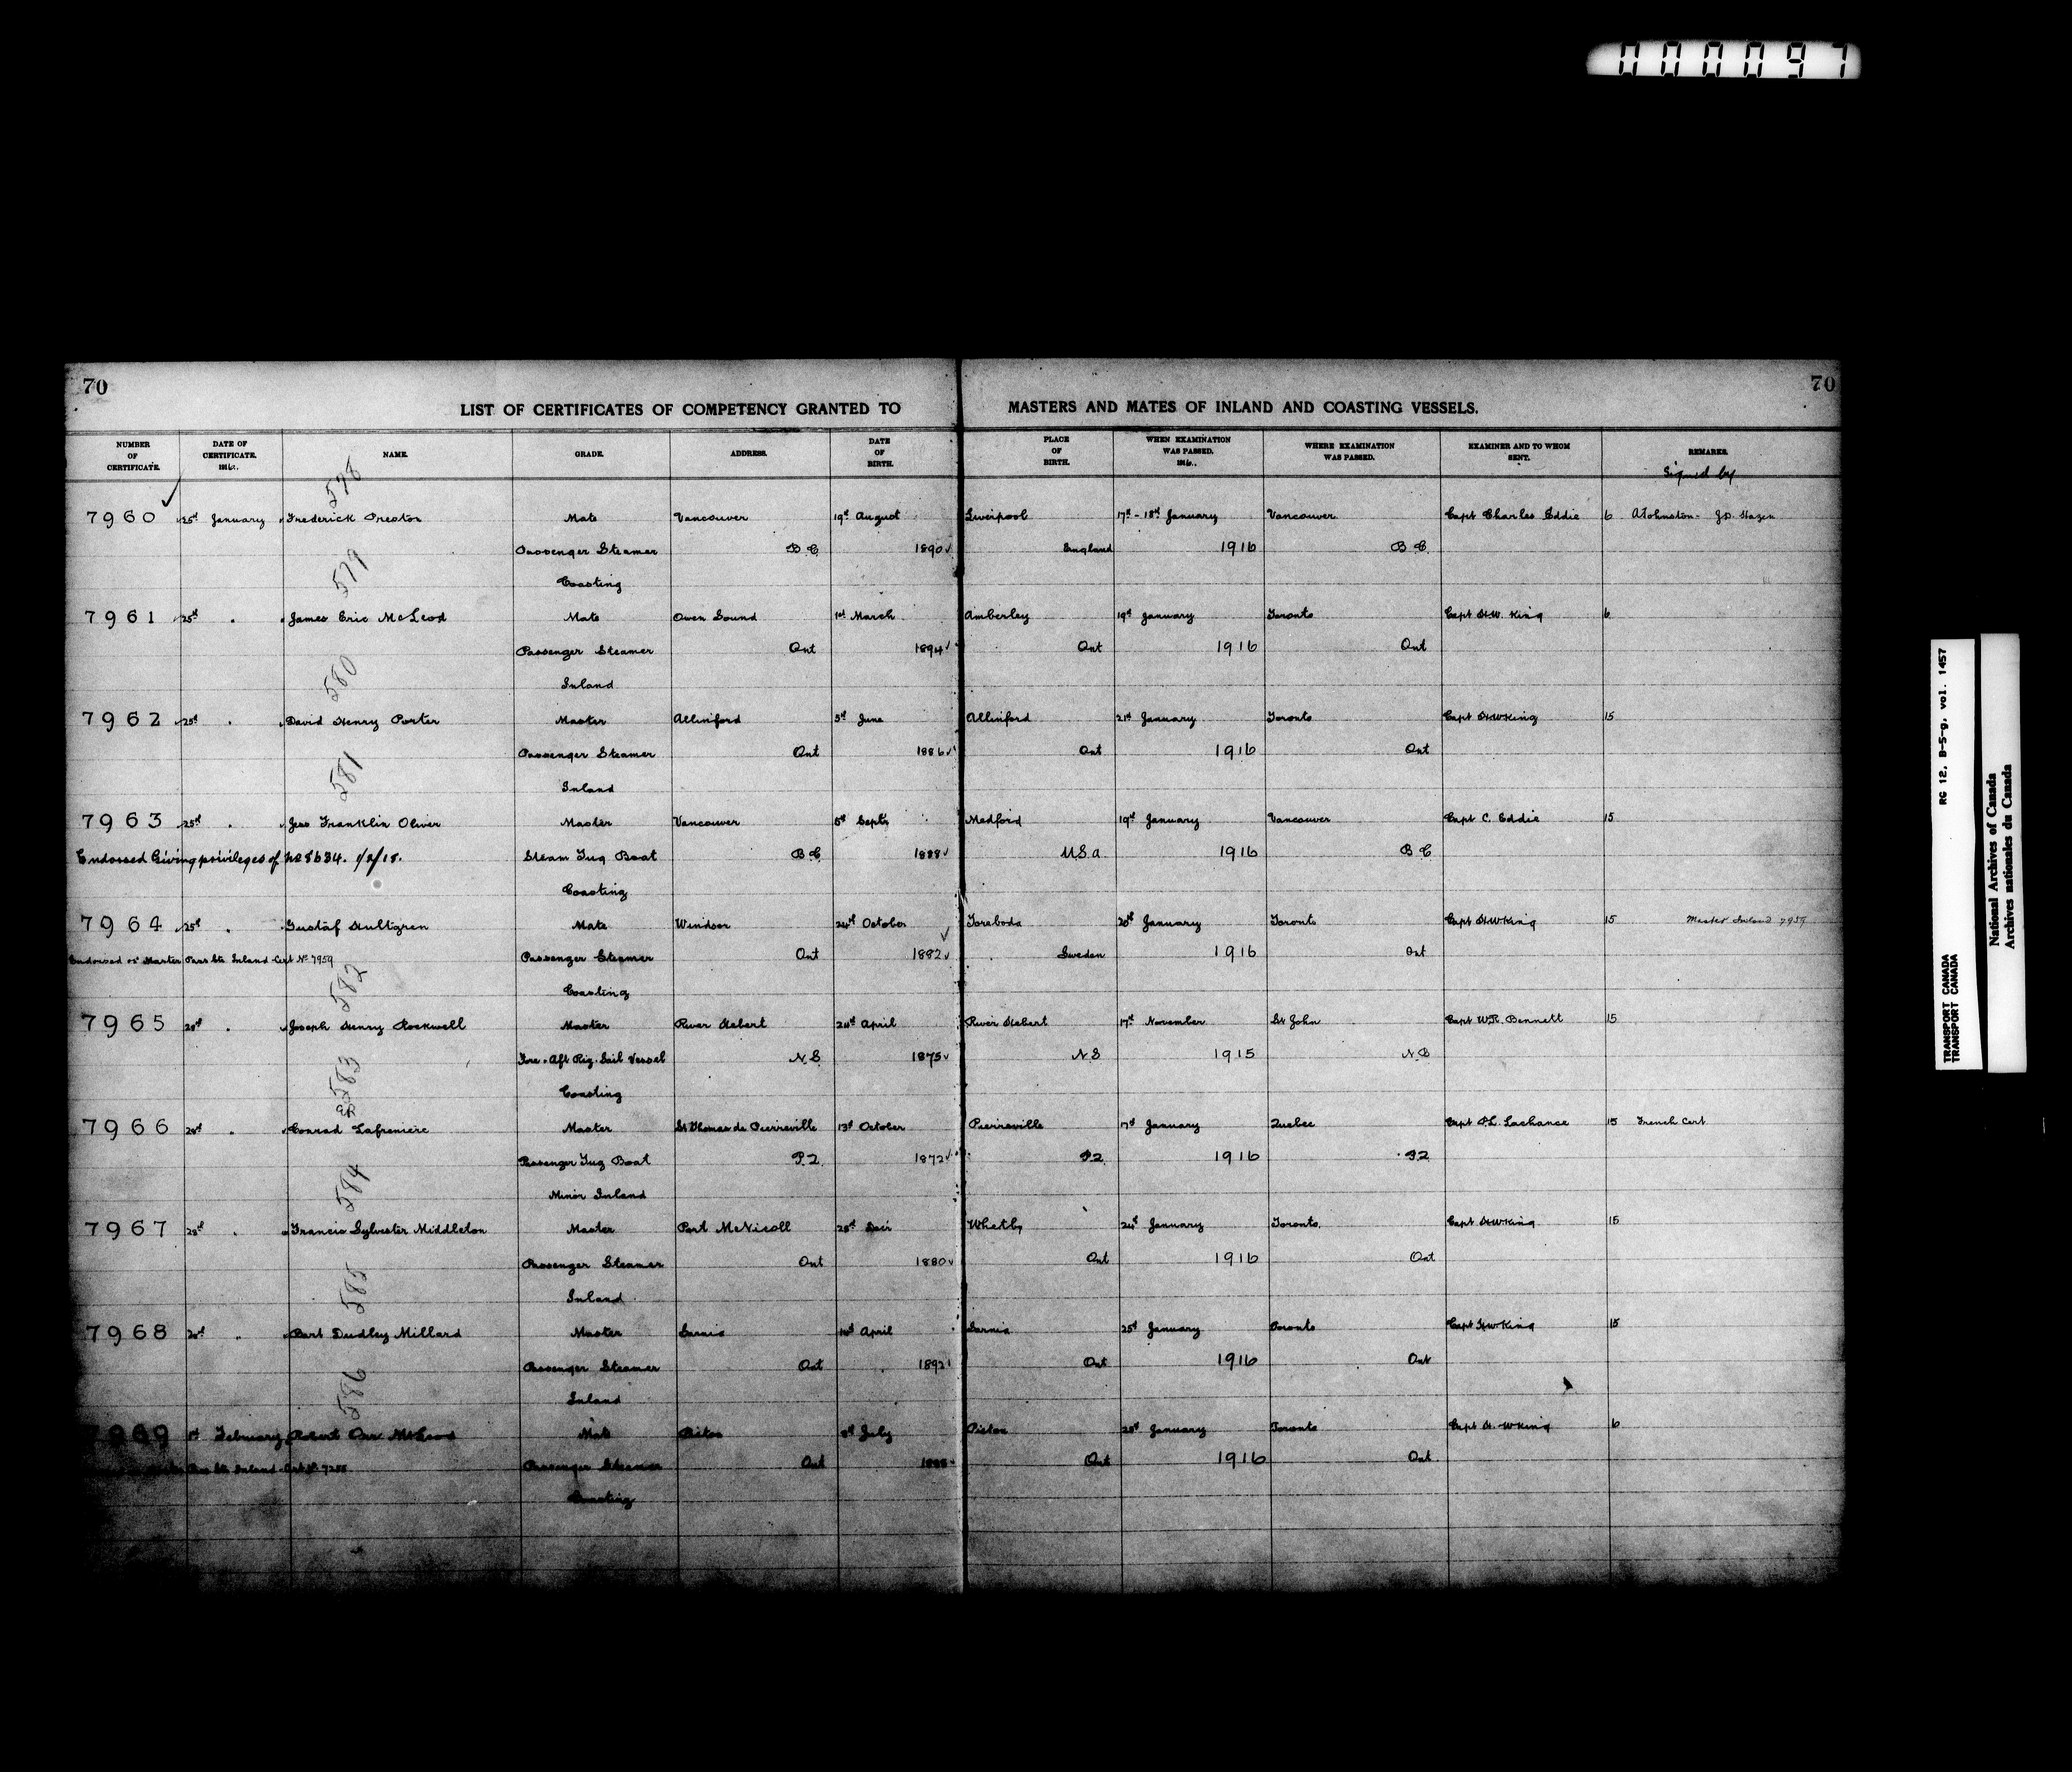 000097
70
70
LIST OF CERTIFICATES OF COMPETENCY GRANTED TO MASTERS AND MATES OF INLAND AND COASTING VESSELS.
NUMBER OF CERTIFICATE. DATE OF CERTIFICATE. 1916. NAME. GRADE. ADDRESS. DATE OF BIRTH. PLACE OF BIRTH. WHEN EXAMINATION WAS PASSED. 1916. WHERE EXAMINATION WAS PASSED. EXAMINER AND TO WHOM SENT. REMARKS.
Signed by
578
7960 25th January Frederick Preston Mate Vancouver 19th August Liverpool 17th - 18th January Vancouver Capt Charles Eddie 6 A Johnston - J.D. Hazen
Passenger Steamer B C 1890 England 1916 B C
Coasting
579
7961 25th " James Eric McLeod Mate Owen Sound 1st March Amberley 19th January Toronto Capt H.W. King 6
Passenger Steamer Ont 1894 Ont 1916 Ont
Inland
580
7962 25th " David Henry Porter Master Alliniford 5th June Alliniford 21st January Toronto Capt H W King 15
Passenger Steamer Ont 1886 Ont 1916 Ont
Inland
581
7963 25th " Jess Franklin Oliver Master Vancouver 5th Sept Medford 19th January Vancouver Capt C. Eddie 15
Endorsed Giving privileges of No 8634. 1/2/18. Steam Tug Boat B C 1888 U.S.a 1916 B C
Coasting
7964 25th " Gustaf Hultgren Mate Windsor 24th October Toreboda 20th January Toronto Capt H W King 15 Master Inland 7959
Endorsed as Master Pass Str Inland Cert No 7959 Passenger Steamer Ont 1882 Sweden 1916 Ont
Coasting
582
7965 28th " Joseph Henry Rockwell Master River Hebert April River Hebert 17th November St John Capt W.R. Bennett 15
Fore & Aft Rig. Sail Vessel N.S. 1875 N S 1915 N.B
Coasting
583
7966 28th " Conrad Lafreniere Master St Thomas de Pierreville 13th October Pierreville 17th January Quebec Capt P.L. Lachance 15 French Cert
Passenger Tug Boat P.2. 1872 P2 1916 P.2
Minor Inland
584
7967 28th " Francis Sylvester Middleton Master Port McNicoll 25th Whitby 24th January Toronto. Capt H W King 15
Passenger Steamer Ont 1880 Ont 1916 Ont
Inland
585
7968 " Bart Dudley Millard Master Sarnia April Sarnia 25th January Toronto Capt H W King 15
Passenger Steamer Ont 1892 Ont 1916 Ont
Inland
586
7969 1st February Robert Orr McLeod Mate Picton July Picton 28th January Toronto Capt H. W King 6
Pass Str Inland Cert No Passenger Steamer Ont Ont 1916 Ont
Coasting
RG 12, B-5-g, vol. 1457
TRANSPORT CANADA
TRANSPORT CANADA
National Archives of Canada
Archives nationales du Canada